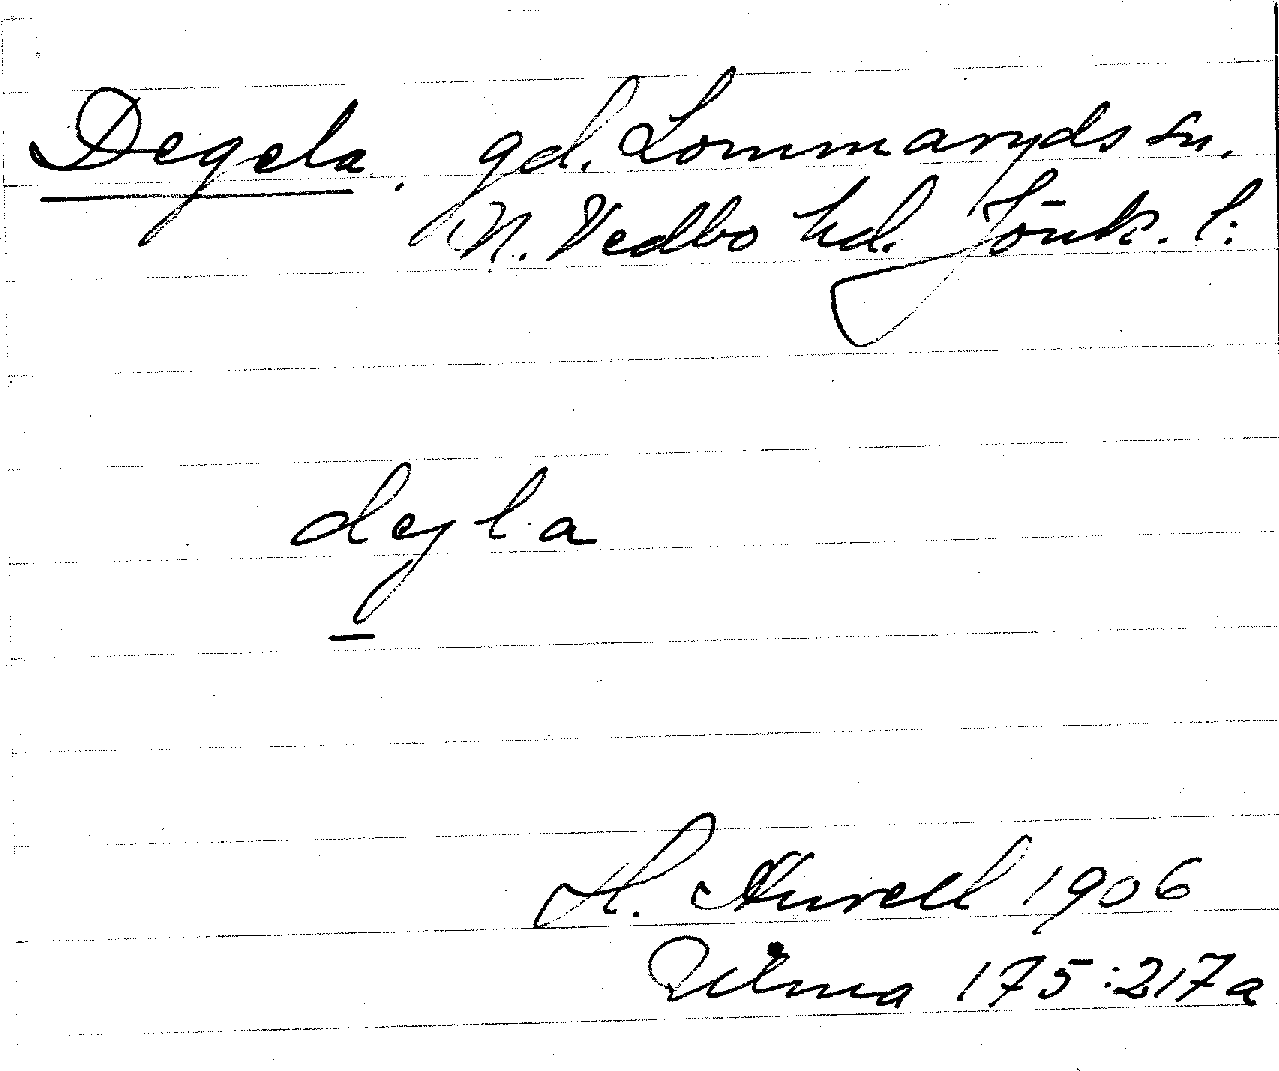 Degela, gd. Lommaryds sn.
N. Vedbo hd. Jönk. l:
degla
H. Aurell 1906
Ulma 175:217a